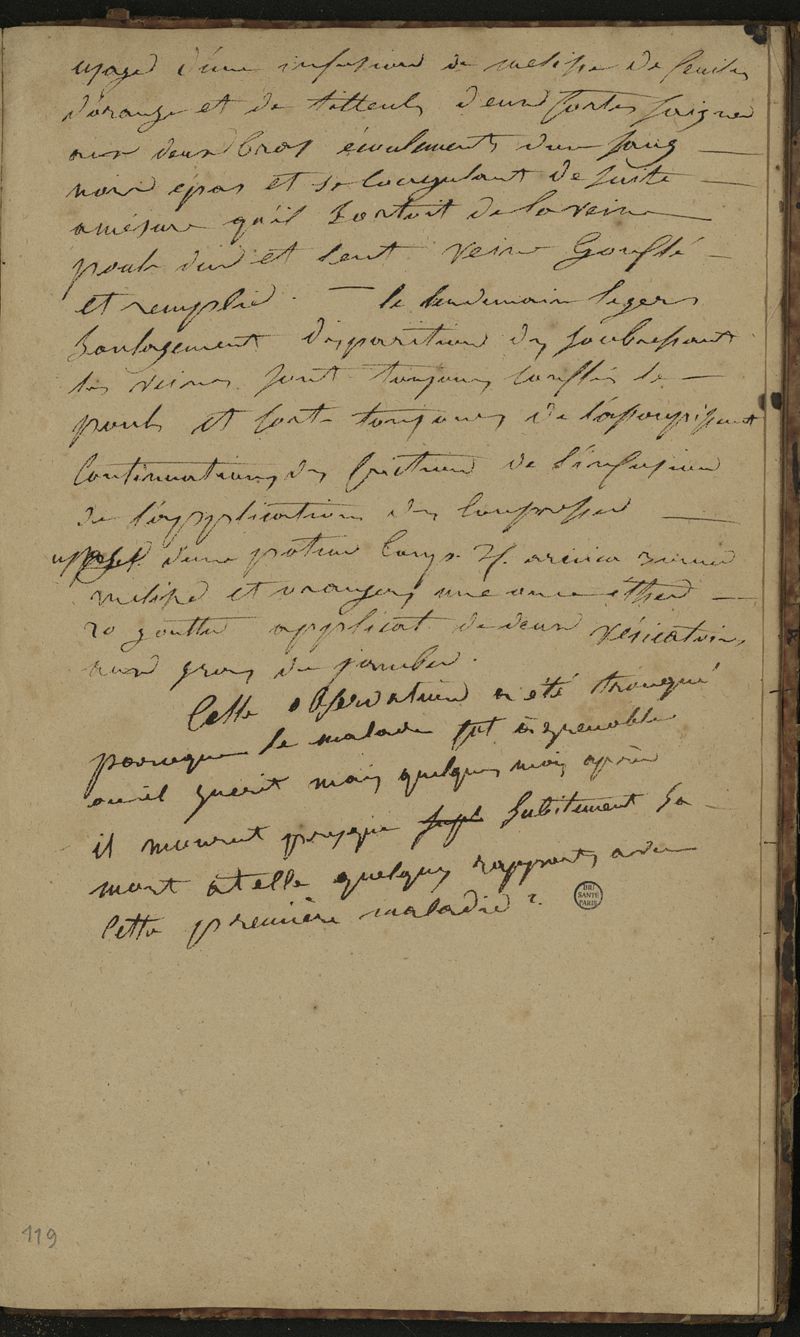 usage d'une infusion de melisse de feuilles
d'orange et de tilleuls deux fortes saignés
aux deux bras écoulement d'un sang
noir épas et se coagulant de suite
amésure qu'il sortoit de la veine
pouls dur et lent veine gonflé
et remplie. — le lendemain leger
soulagement disparition des soubressant
les veines sont toujours gonflés le
pouls et forte toujours de l'asoupissent
Continuation des friction de l'infusion
de l'application des compresses
d'une potion comp. arnica
melisse et oranger une once éther
20 goutte applicat de deux vésicatoire
aux gras de jambes.
Cette observation a été tronqué
parceque le malade fut à grenoble
ou il guerit mais quelques mois après
il mourut presque subitement sa
mort at elle quelques rapports avec
cette première maladie ?
BIU
SANTÉ
PARIS
119